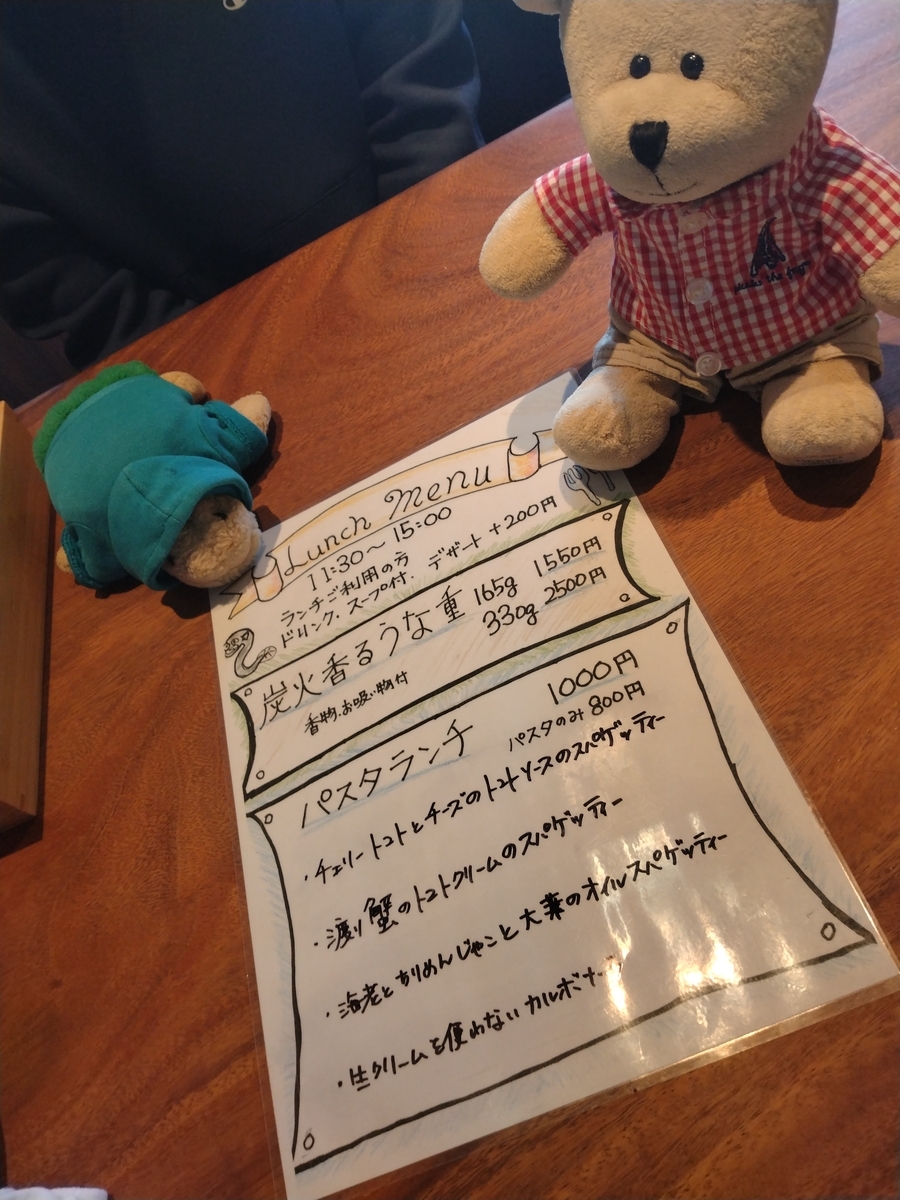 Lunch Menu
11:30～15:00
ランチご利用の方
ドリンク.スープ付. デザート +200円
炭火香るうな重 165g 1550円
330g 2500円
香物.お吸い物付
パスタランチ 1000円
パスタのみ 800円
・チェリートマトとチーズのトマトソースのスパゲッティー
・渡り蟹のトマトクリームのスパゲッティー
・海老とちりめんじゃこと大葉のオイルスパゲッティー
・生クリームを使わないカルボナーラ